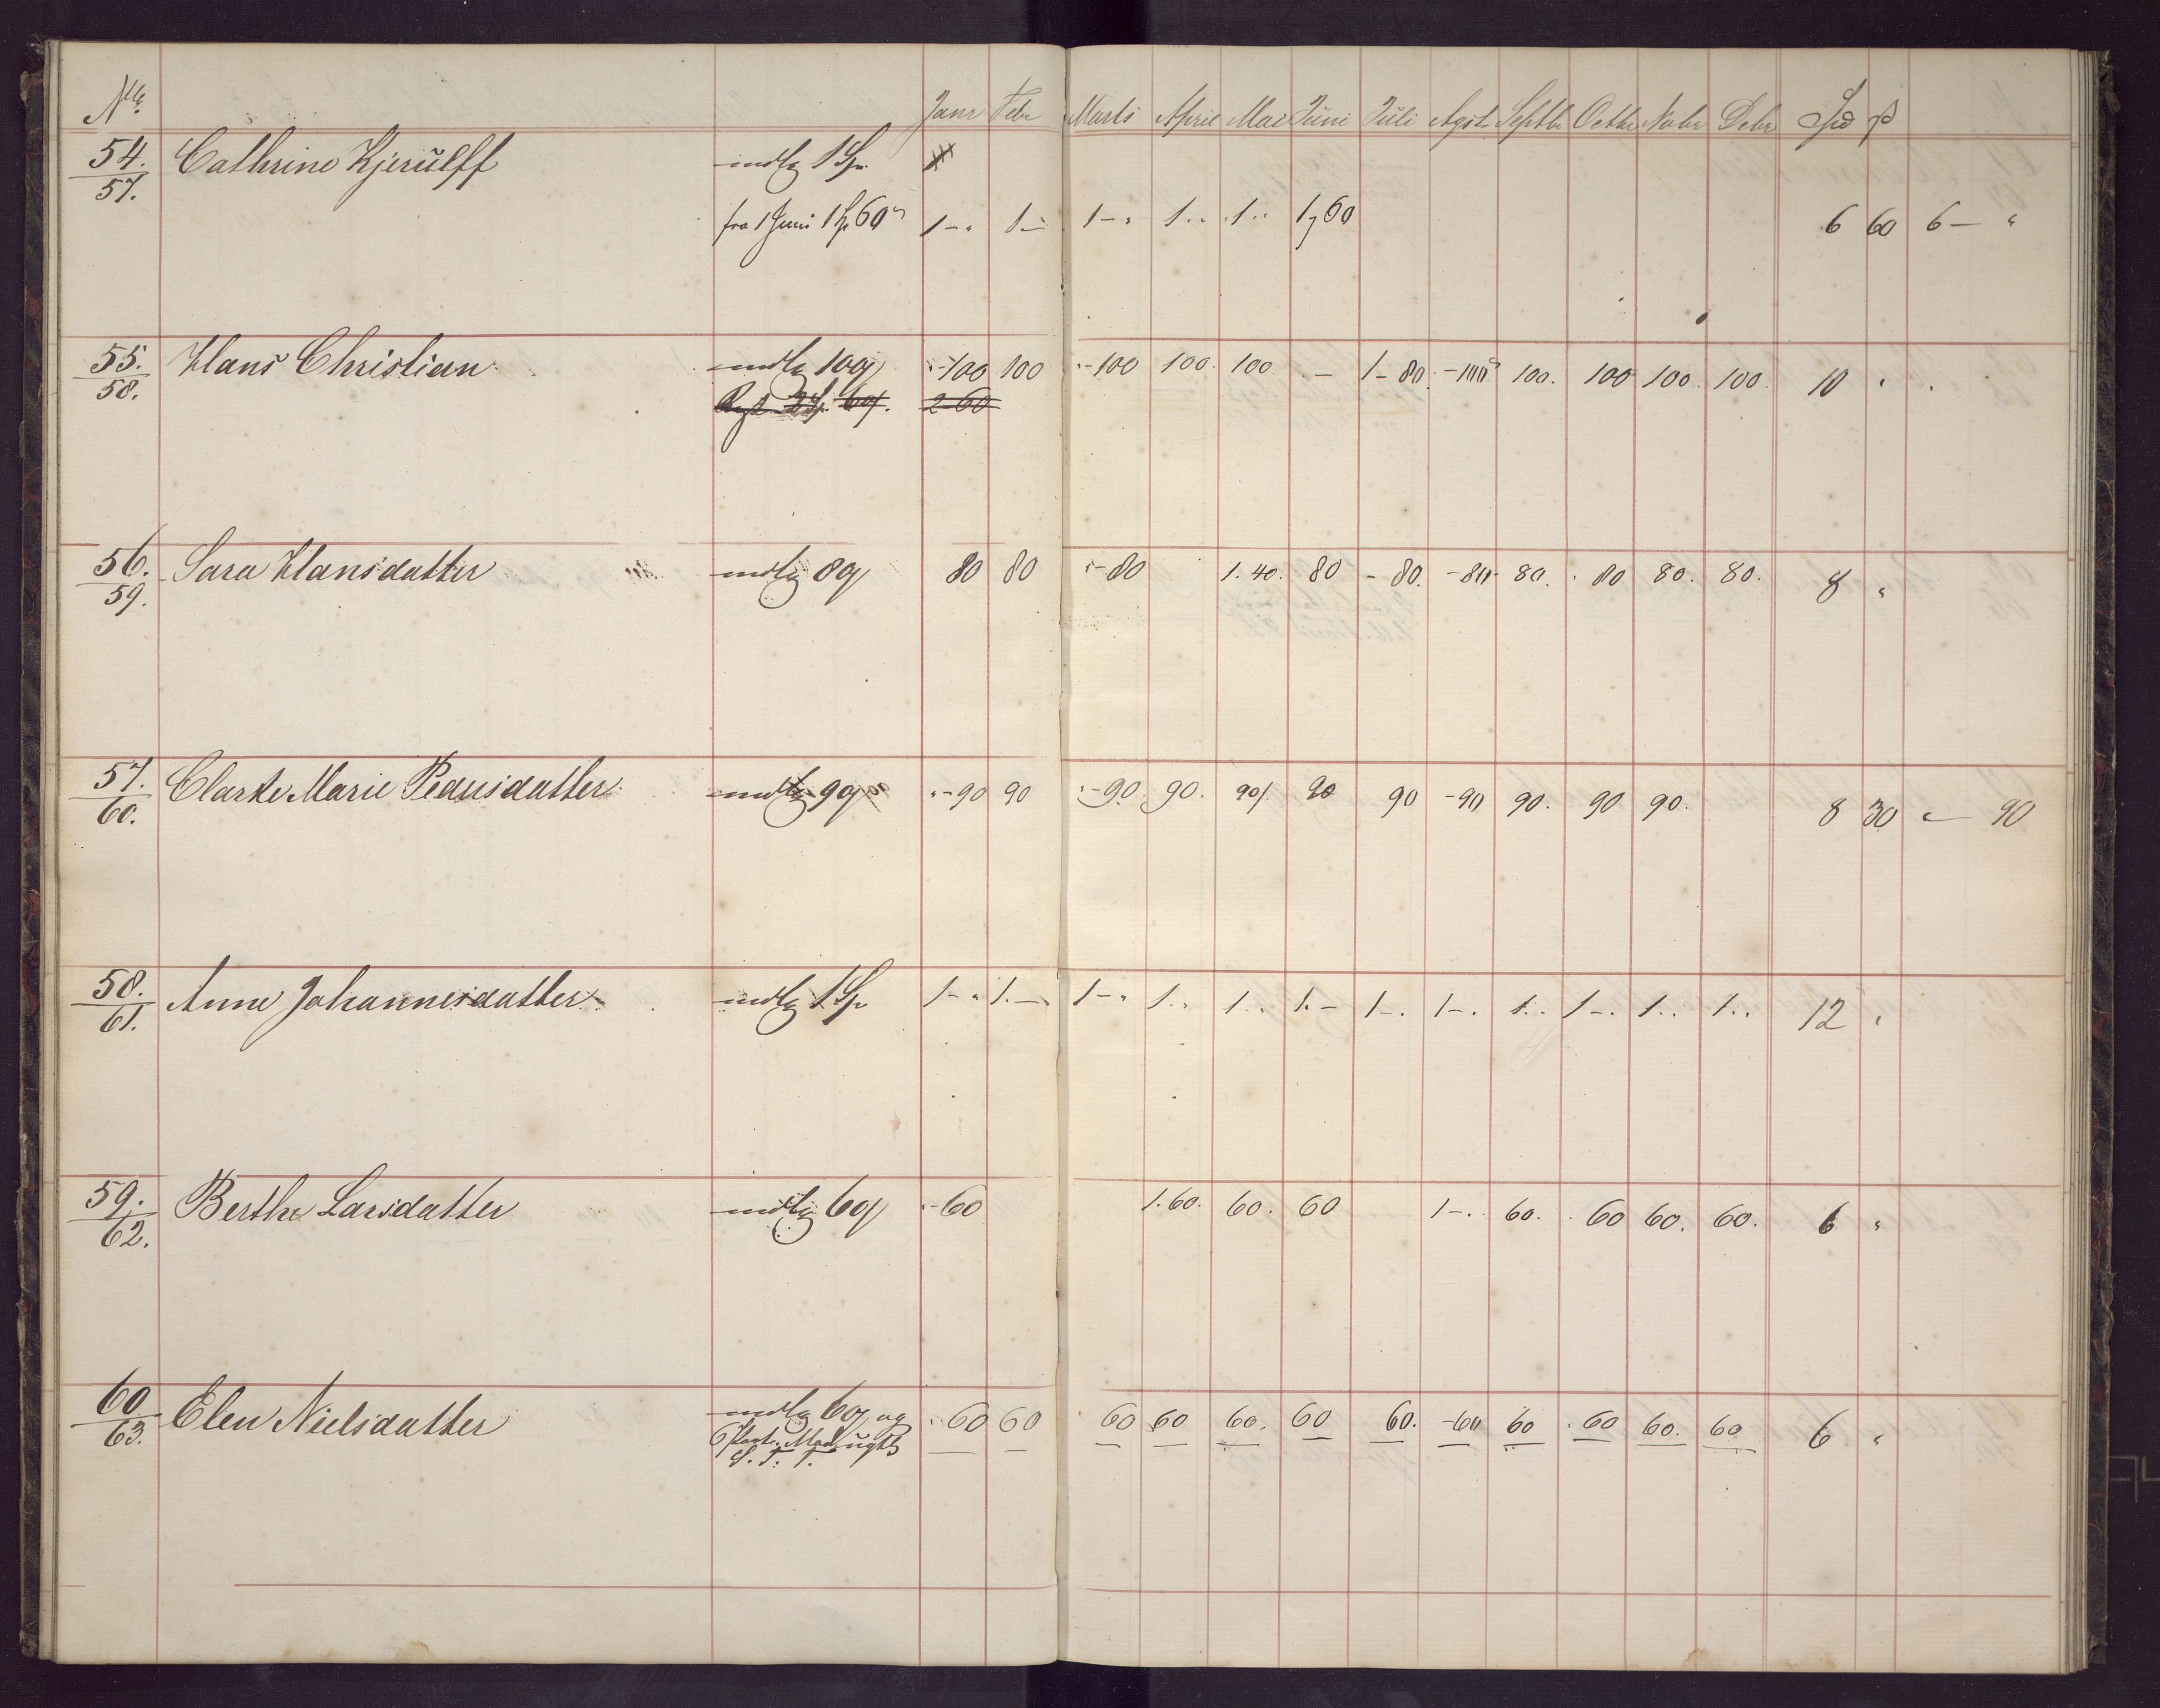 No. Janr Febr Marts April Mai Juni Juli Agst Septbr Octbr Novbr Debr Spd ß
54. Cathrine Kjerulff mdtlg 1 Sp. 
57. fra 1 Juni 1 Sp 60 ß 1 - " 1 - 1 - " 1 . . 1 . . 1, 60 6 60 6 - "
55. Hans Christian mdtlg 100 ß " - 100 100 " - 100 100. 100 - 1 - 80. - 100 100. 100 100. 100. 10 " .
58. 2 - 60
56. Sara Hansdatter mdtlg 80 ß 80 80 " - 80 1. 40. 80 - 80. - 80 - 80. . 80 80. 80. 8 "
59.
57. Marie Pedersdatter mdtlg 90 ß " - 90 90 " - 90. 90. 90 ß. 90 90 - 90 90. 90 90. 8 30 " - 90
60.
58. Anne Johannesdatter mdtlg 1 Sp 1 - " 1. - 1 - " 1 . . 1 . . 1. - 1 - . 1 - . 1 . . 1 - . 1 . . 1 . . 12 "
61.
59. Berthe Larsdatter mdtlg 60 ß " - 60 1. 60. 60. 60 1 - . 60. . 60 60. 60. 6 "
62.
60 Elen Nielsdatter mdtlg 60 ß og " - 60 60 60 60 60. 60 60. - 60 60 . 60 60. 60 6 "
63. 6 Port. Mad ugtl